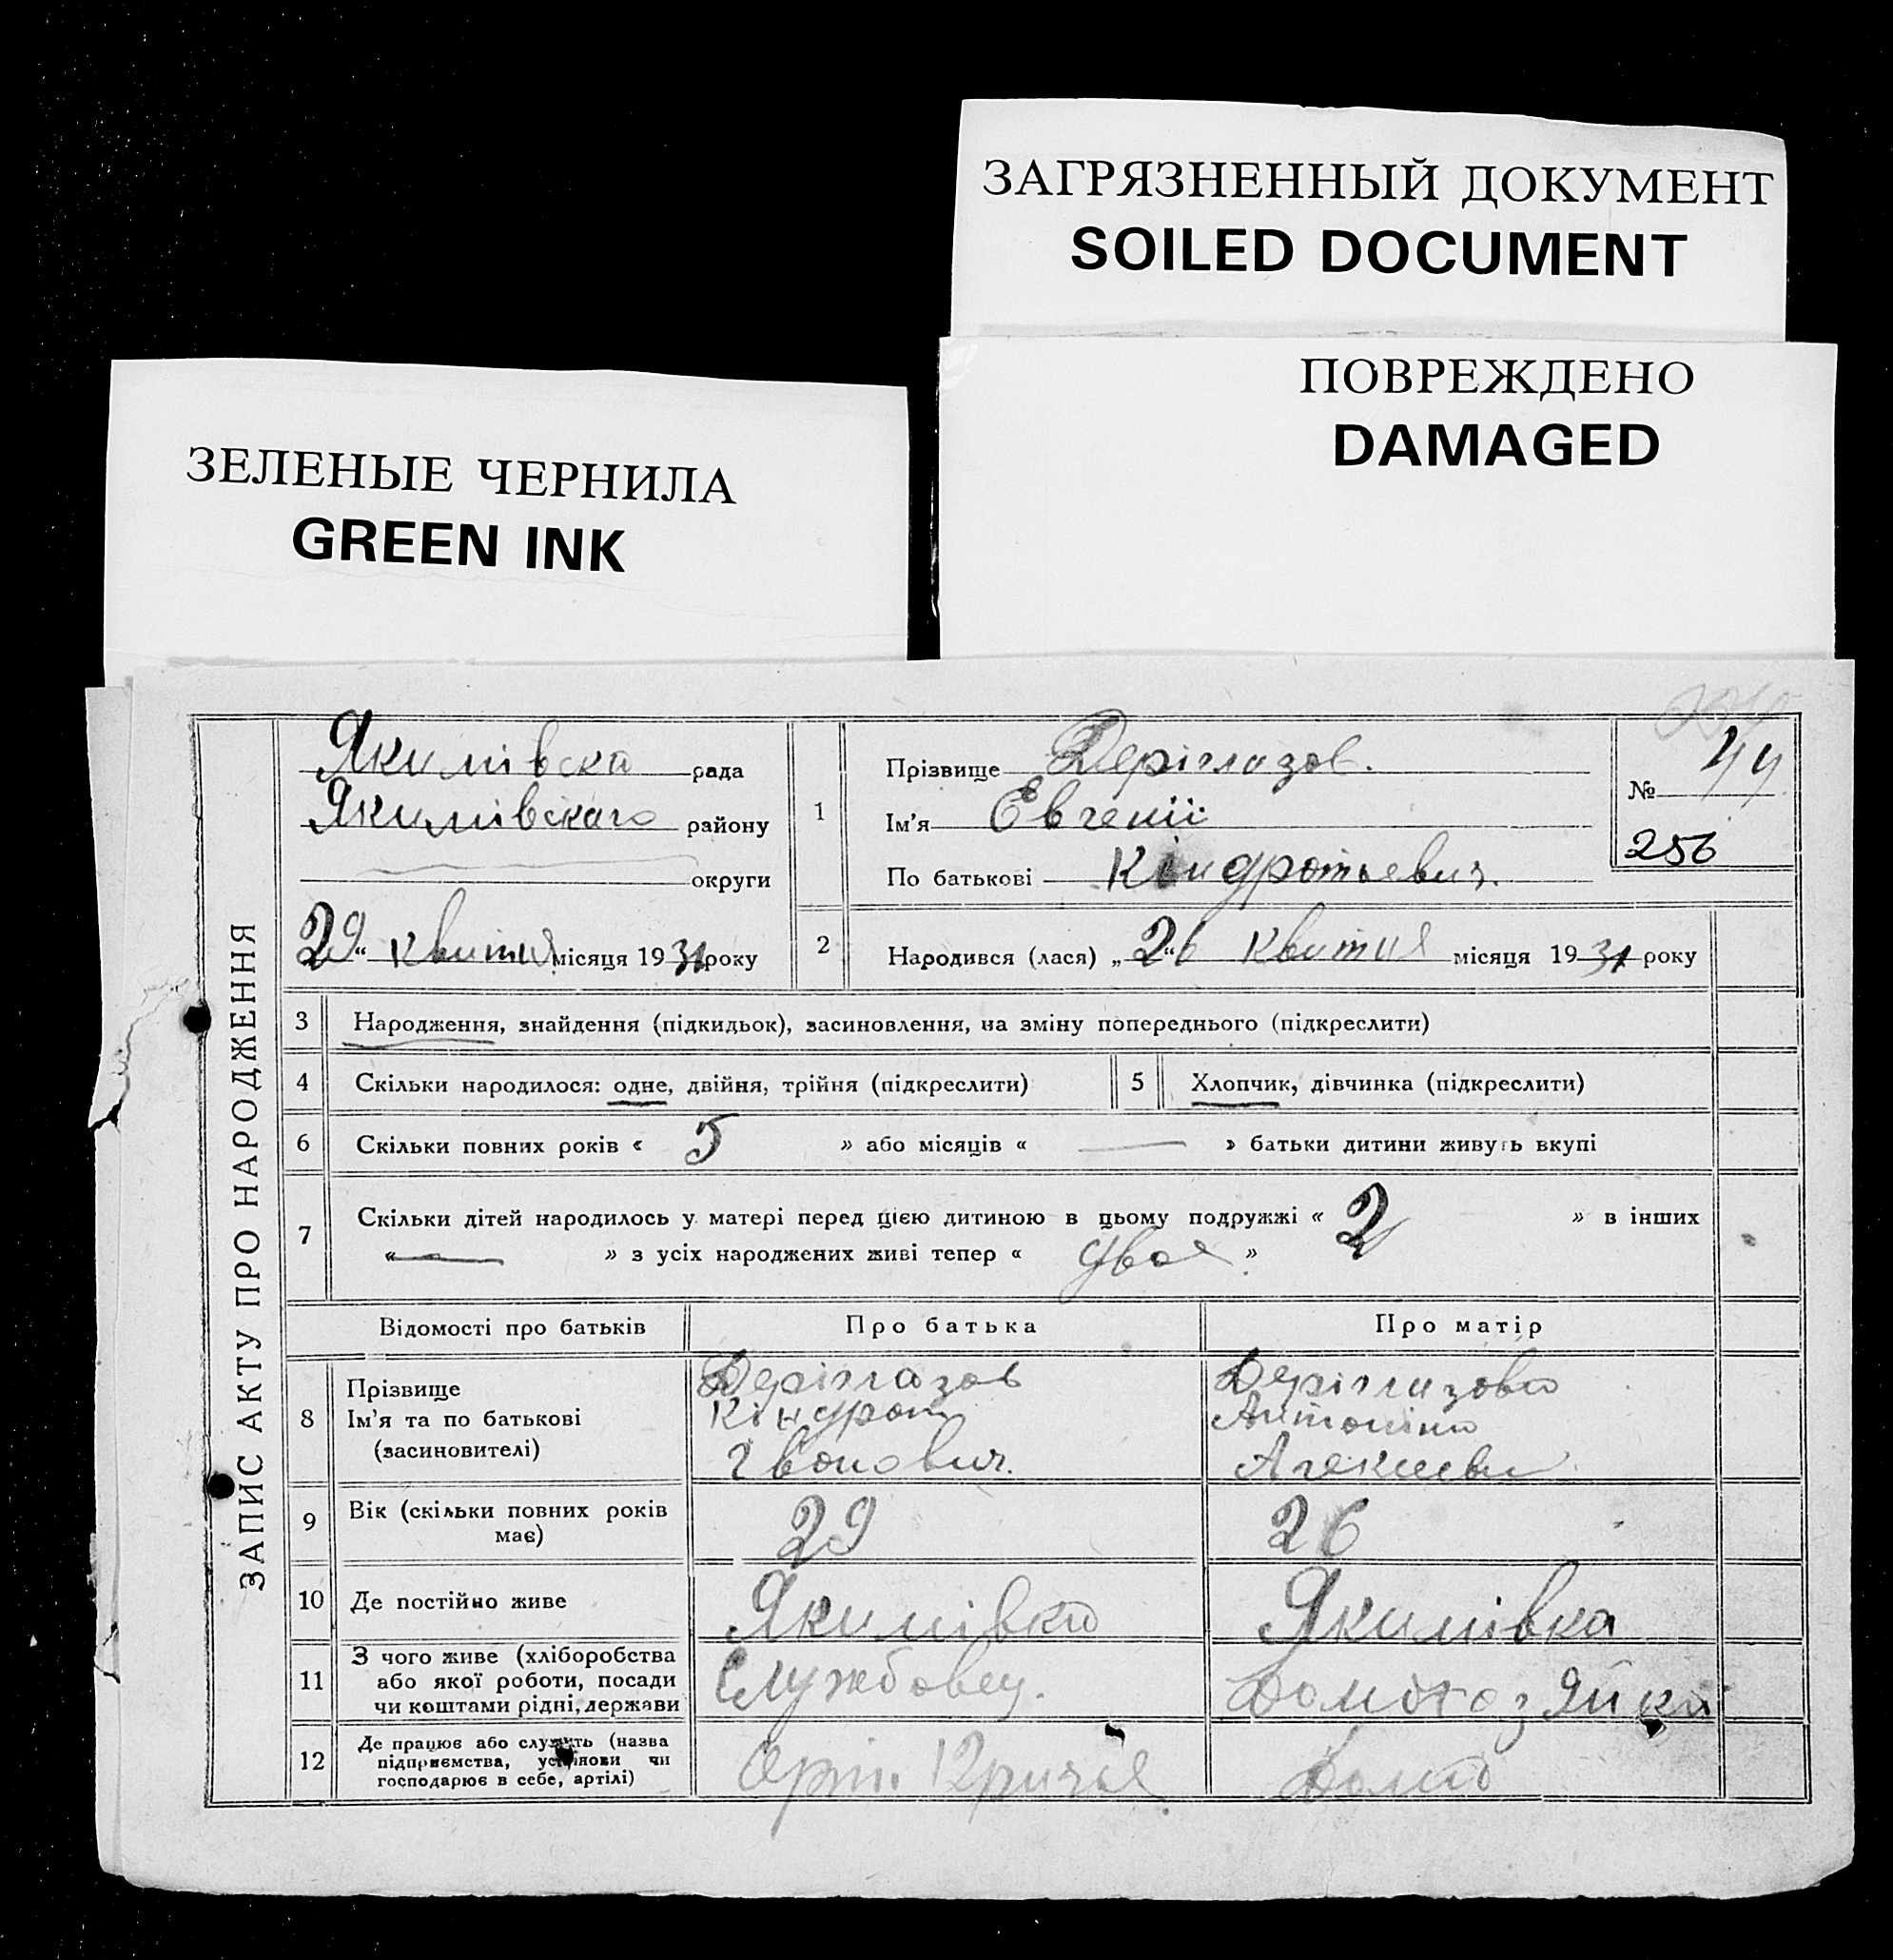 ЗАГРЯЗНЕННЫЙ ДОКУМЕНТ
SOILED DOCUMENT
ПОВРЕЖДЕНО
DAMAGED
ЗЕЛЕНЫЕ ЧЕРНИЛА
GREEN INK
ЗАПИС АКТУ ПРО НАРОДЖЕННЯ
Якимівска рада
Якимівского району
округи
29 “ квитня місяця 1931 року
1
Прізвище Деріглазов.
Ім’я Евгеній
По батькові Кіндротьевич.
№ 44
256
2 Народився (лася) „ 26 “ квитня місяця 1931 року
3 Народження, знайдення (підкидьок), засиновлення, на зміну попереднього (підкреслити)
4 Скільки народилося: одне, двійня, трійня (підкреслити) 5 Хлопчик, дівчинка (підкреслити)
6 Скільки повних років « 5 » або місяців « — » батьки дитини живуть вкупі
7 Скільки дітей народилось у матері перед цією дитиною в цьому подружжі « 2 » в інших
« — » з усіх народжених живі тепер « двое »
Відомості про батьків Про батька Про матір
8 Прізвище Деріглазов Деріглазова
Ім’я та по батькові Кіндрот Антоніна
(засиновителі) Івонович. Алексиевн
9 Вік (скільки повних років 29 26
має)
10 Де постійно живе Якимівка Якимівка
11 З чого живе (хліборобства
або якої роботи, посади Службовец. Домохозяйка
чи коштами рідні, держави
12 Де працює або служить (назва
підприємства, установи чи Дома
господарює в себе, артілі)